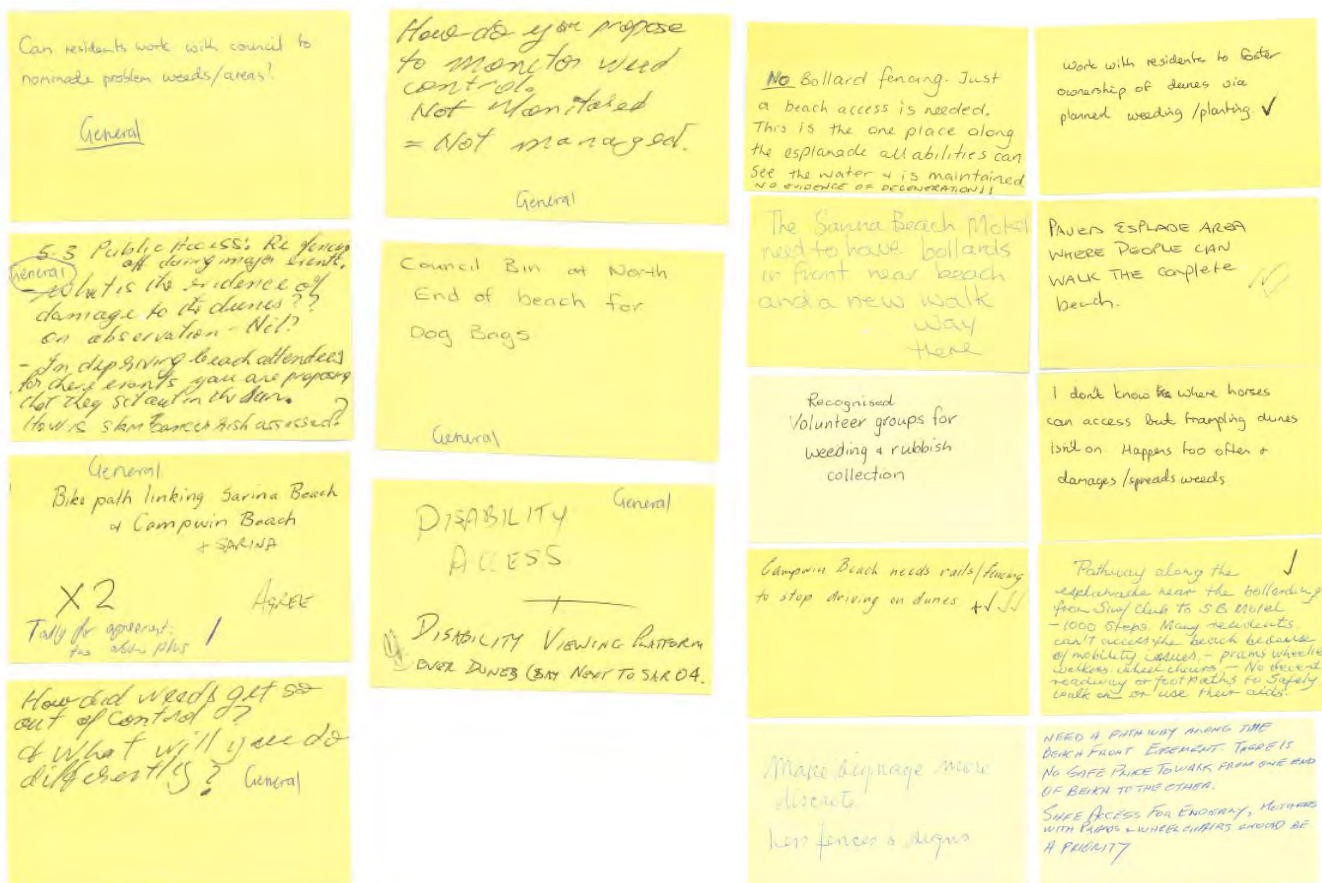 Can residents work with council to
nominate problem weeds/areas?
General
5.3 Public Access: Re fencing
off during major events.
General
- What is the evidence of
damage to the dunes??
on observation - Nil?
- In depriving beach attendees
for these events you are proposing
that they sit out in the sun.
How is skin cancer risk assessed?
General
Bike path linking Sarina Beach
& Campwin Beach
+ SARINA
X2
AGREE
Tally for agreement:
plus
How did weeds get so
out of control?
& what will you do
differently?
General
How do you propose
to monitor weed
control.
Not Monitored
= Not managed.
General
Council Bin at North
End of beach for
Dog Bags
General
General
DISABILITY
ACCESS
DISABILITY VIEWING PLATFORM
OVER DUNES (SAY NEXT TO SAR 04.
NO Bollard fencing. Just
a beach access is needed.
This is the one place along
the esplanade all abilities can
see the water & is maintained
NO EVIDENCE OF DEGENERATION!!
The Sarina Beach Motel
need to have bollards
in front near beach
and a new walk
way
there
Recognised
Volunteer groups for
weeding & rubbish
collection
Campwin Beach needs rails/fencing
to stop driving on dunes +✓✓✓
Make signage more
discrete
Less fences & signs
Work with residents to foster
ownership of dunes via
planned weeding/planting. ✓
PAVED ESPLADE AREA
WHERE PEOPLE CAN
WALK THE complete
beach.
I don't know where horses
can access but trampling dunes
isn't on. Happens too often &
damages/spreads weeds
Pathway along the ✓
esplanade near the bollarding
from Surf Club to SB Motel
- 1000 Steps. Many residents
can't access the beach because
of mobility issues, - prams wheelie
walkers wheel chairs, - No decent
roadway or footpaths to safely
walk on or use their aids.
NEED A PATHWAY ALONG THE
BEACH FRONT EASEMENT. THERE IS
NO SAFE PLACE TO WALK FROM ONE END
OF BEACH TO THE OTHER.
SAFE ACCESS FOR ENDERLY, MOTHERS
WITH PRAMS & WHEEL CHAIRS SHOULD BE
A PRIORITY